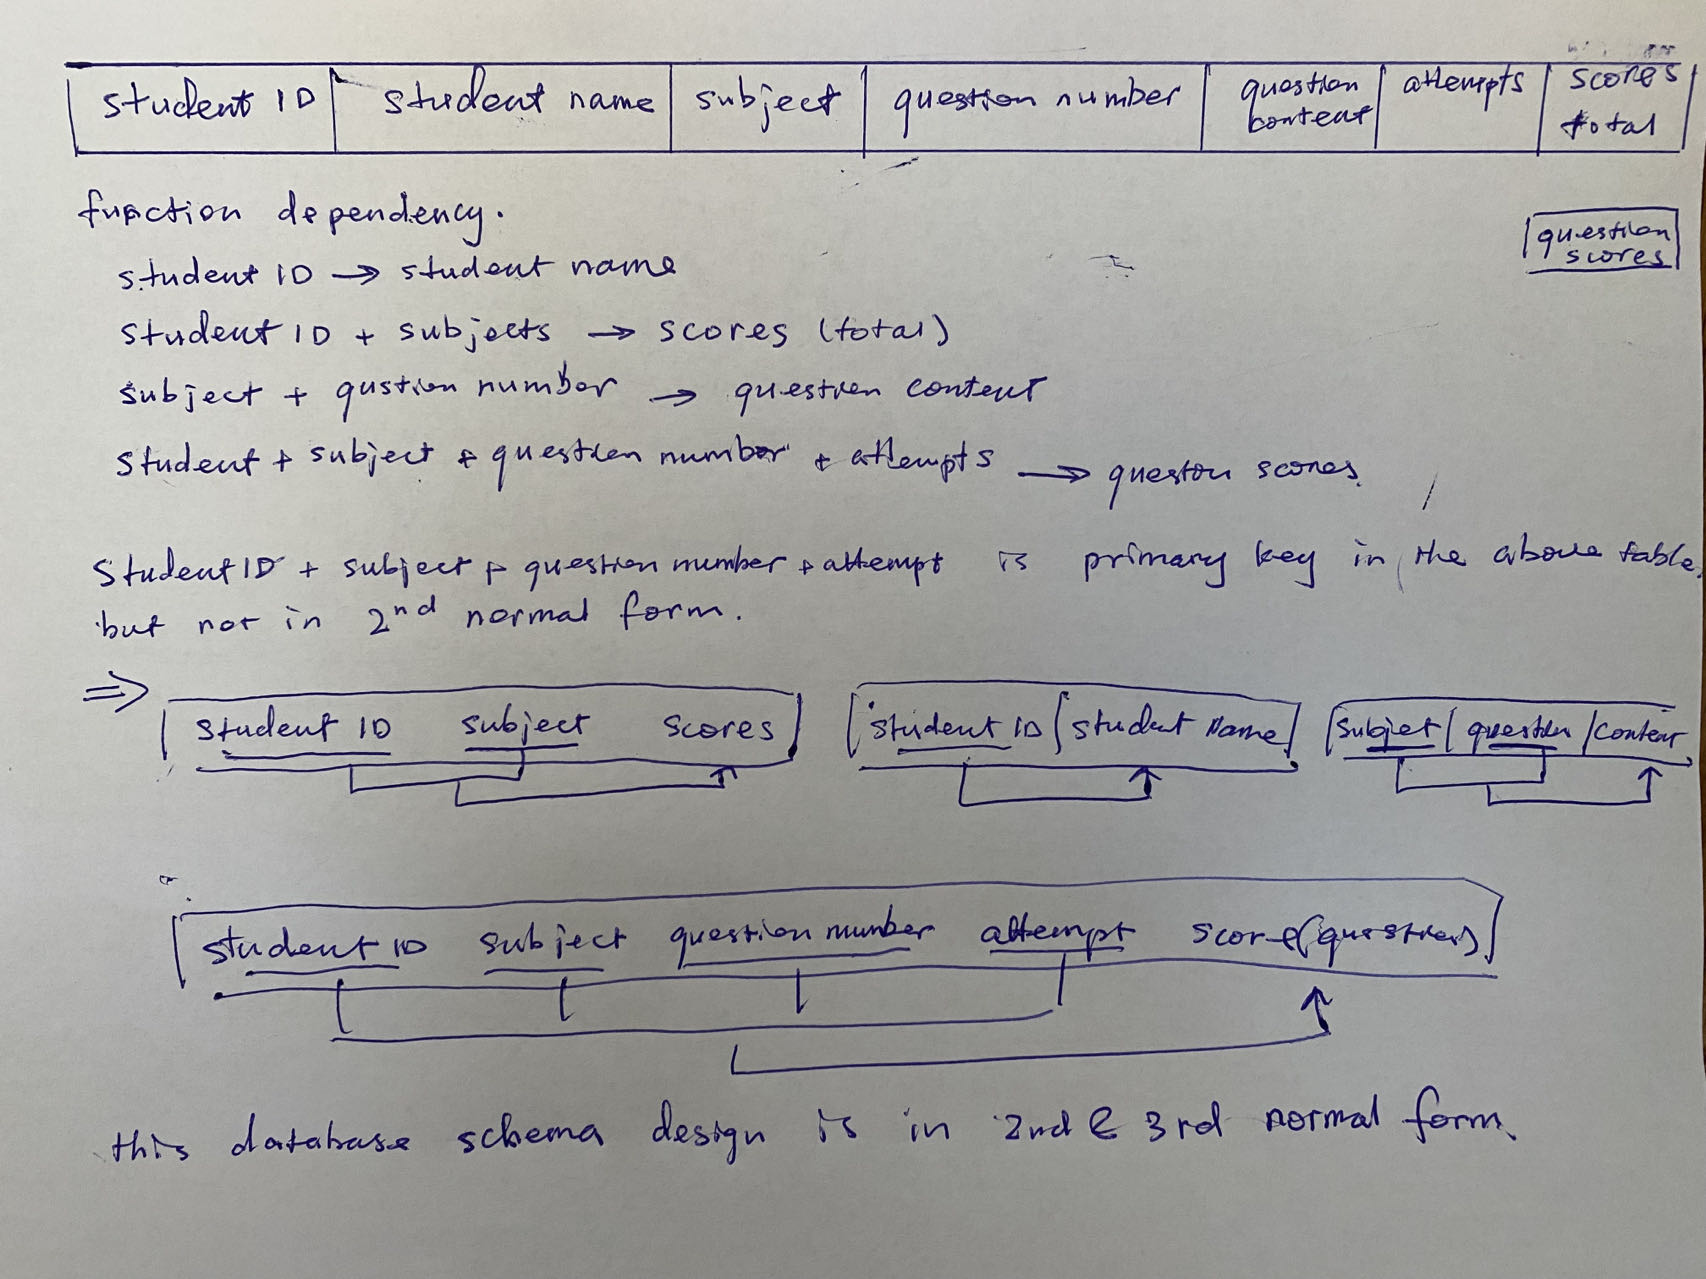 student ID student name subject question number question content attempts scores total
function dependency.
question scores
student ID → student name
student ID + subjects → scores (total)
subject + qustion number → question content
student + subject + question number + attempts → question scores
student ID + subject + question number + attempt is primary key in the above table.
but not in 2nd normal form.
⇒ student ID subject scores student ID student Name subject question content
student ID subject question number attempt score(question)
this database schema design is in 2nd & 3rd normal form.